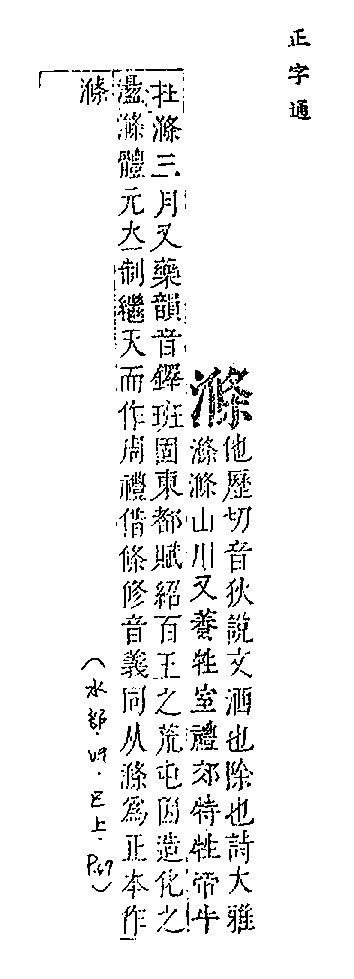 正字通
滌
他歷切音狄說文洒也除也詩大雅
滌滌山川又養牲室禮郊特牲帝牛
在滌三月又藥韻音鐸班固東都賦紹百王之荒屯因造化之
盪滌體元立制繼天而作周禮借條修音義同从滌為正本作
滌
(水部·巳上·P.67)